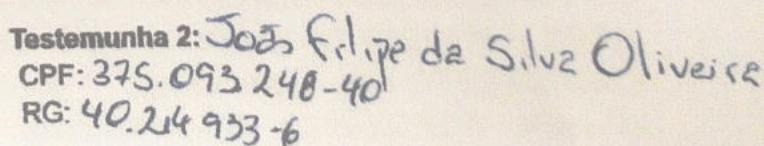 Testemunha 2: João Filipe da Silva Oliveira
CPF: 375.093 248-40
RG: 40.214 933-6